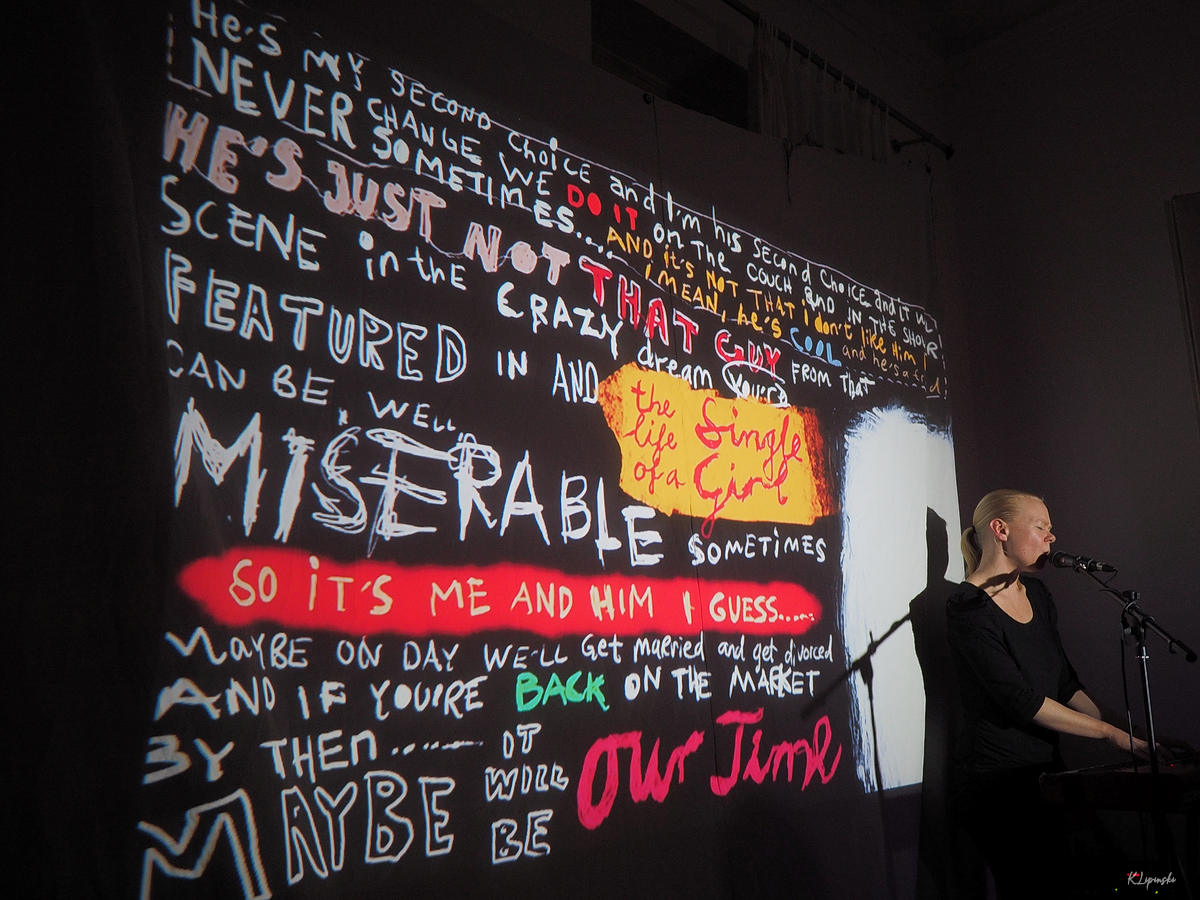 He's my second choice and I'm his second choice and it will
NEVER CHANGE WE DO IT on THE COUCH AND IN THE SHOWER
SOMETIMES.... AND it's NOT THAT i don't like Him
HE'S JUST NOT THAT GUY I MEAN, he's COOL and he's a
SCENE in the CRAZY dream you're FROM THAT
FEATURED IN AND the life of a Single Girl
CAN BE, WELL,
MISERABLE SOMETIMES
SO iT'S ME AND HIM I GUESS.....
MAYBE ON DAY WE'LL Get married and get divorced
AND IF YOU'RE BACK ON THE MARKET
BY THEN...... IT WILL BE Our Time
MAYBE
K.Lipinski